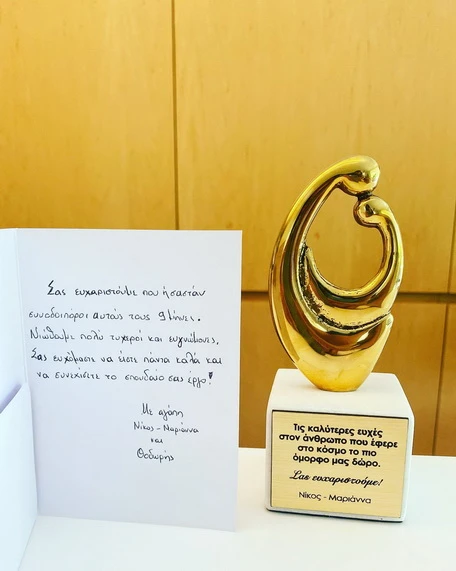 Σας ευχαριστούμε που ήσασταν
συνοδοιπόροι αυτούς τους 9 μήνες.
Νιώθουμε πολύ τυχεροί και ευγνώμονες.
Σας ευχόμαστε να είστε πάντα καλά και
να συνεχίσετε το σπουδαίο σας έργο!
Με αγάπη
Νίκος - Μαριάννα
και
Θοδωρής
Τις καλύτερες ευχές
στον άνθρωπο που έφερε
στο κόσμο το πιο
όμορφο μας δώρο.
Σας ευχαριστούμε!
Νίκος - Μαριάννα